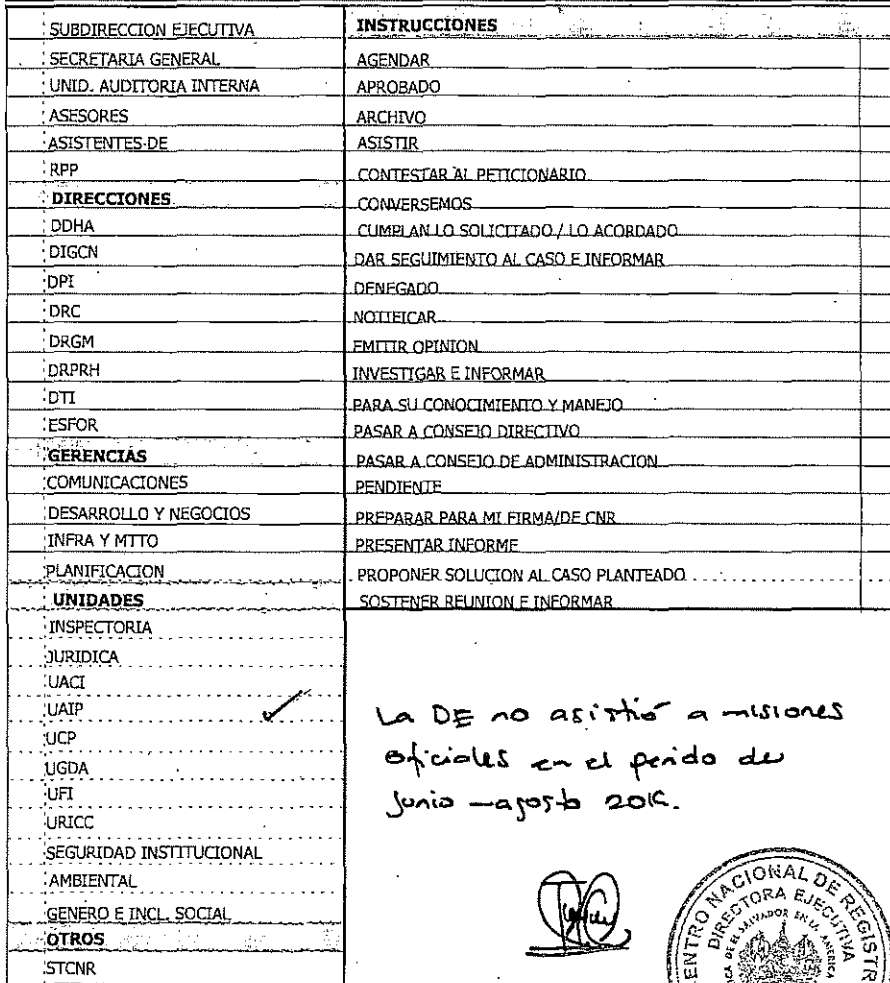 SUBDIRECCION EJECUTIVA
SECRETARIA GENERAL
UNID. AUDITORIA INTERNA
ASESORES
ASISTENTES-DE
RPP
DIRECCIONES
DDHA
DIGCN
DPI
DRC
DRGM
DRPRH
DTI
ESFOR
GERENCIAS
COMUNICACIONES
DESARROLLO Y NEGOCIOS
INFRA Y MTTO
PLANIFICACION
UNIDADES
INSPECTORIA
JURIDICA
UACI
UAIP
UCP
UGDA
UFI
URICC
SEGURIDAD INSTITUCIONAL
AMBIENTAL
GENERO E INCL. SOCIAL
OTROS
STCNR
INSTRUCCIONES
AGENDAR
APROBADO
ARCHIVO
ASISTIR
CONTESTAR AL PETICIONARIO
CONVERSEMOS
CUMPLAN LO SOLICITADO / LO ACORDADO
DAR SEGUIMIENTO AL CASO E INFORMAR
DENEGADO
NOTIFICAR
EMITIR OPINION
INVESTIGAR E INFORMAR
PARA SU CONOCIMIENTO Y MANEJO
PASAR A CONSEJO DIRECTIVO
PASAR A CONSEJO DE ADMINISTRACION
PENDIENTE
PREPARAR PARA MI FIRMA/DE CNR
PRESENTAR INFORME
PROPONER SOLUCION AL CASO PLANTEADO
SOSTENER REUNION E INFORMAR
La DE no asistió a misiones
oficiales en el perido de
Junio - agosto
CENTRO NACIONAL DE REGISTR
DIRECTORA EJECUTIVA
DE EL SALVADOR EN LA AMERICA